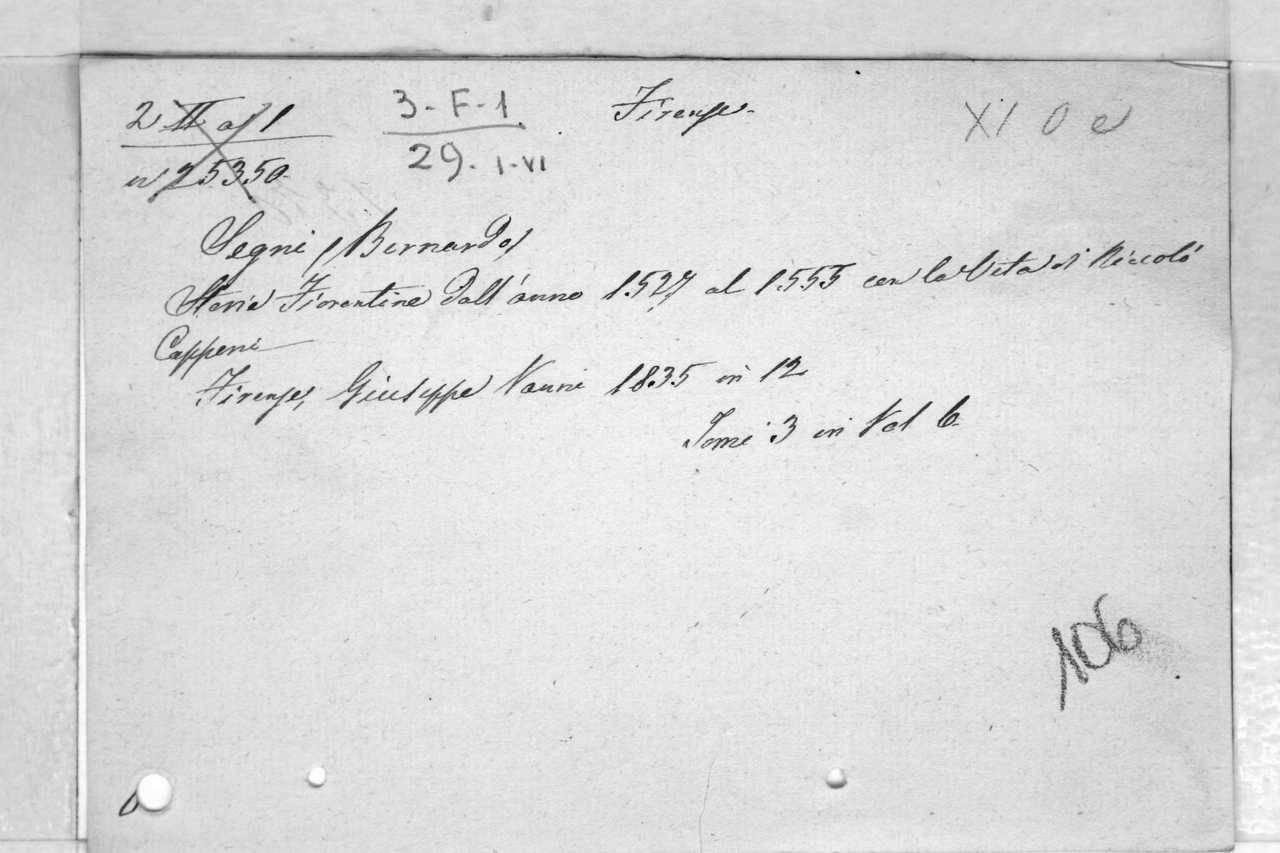 2 II a 1 3-F-1 Firenze XI O e
n 25350 29. I-VI
Segni (Bernardo)
Storie Fiorentine dall'anno 1527 al 1555 con la Vita di Niccolò
Capponi
Firenze, Giuseppe Vanni 1835 in 12
Tomi 3 in Vol 6
106